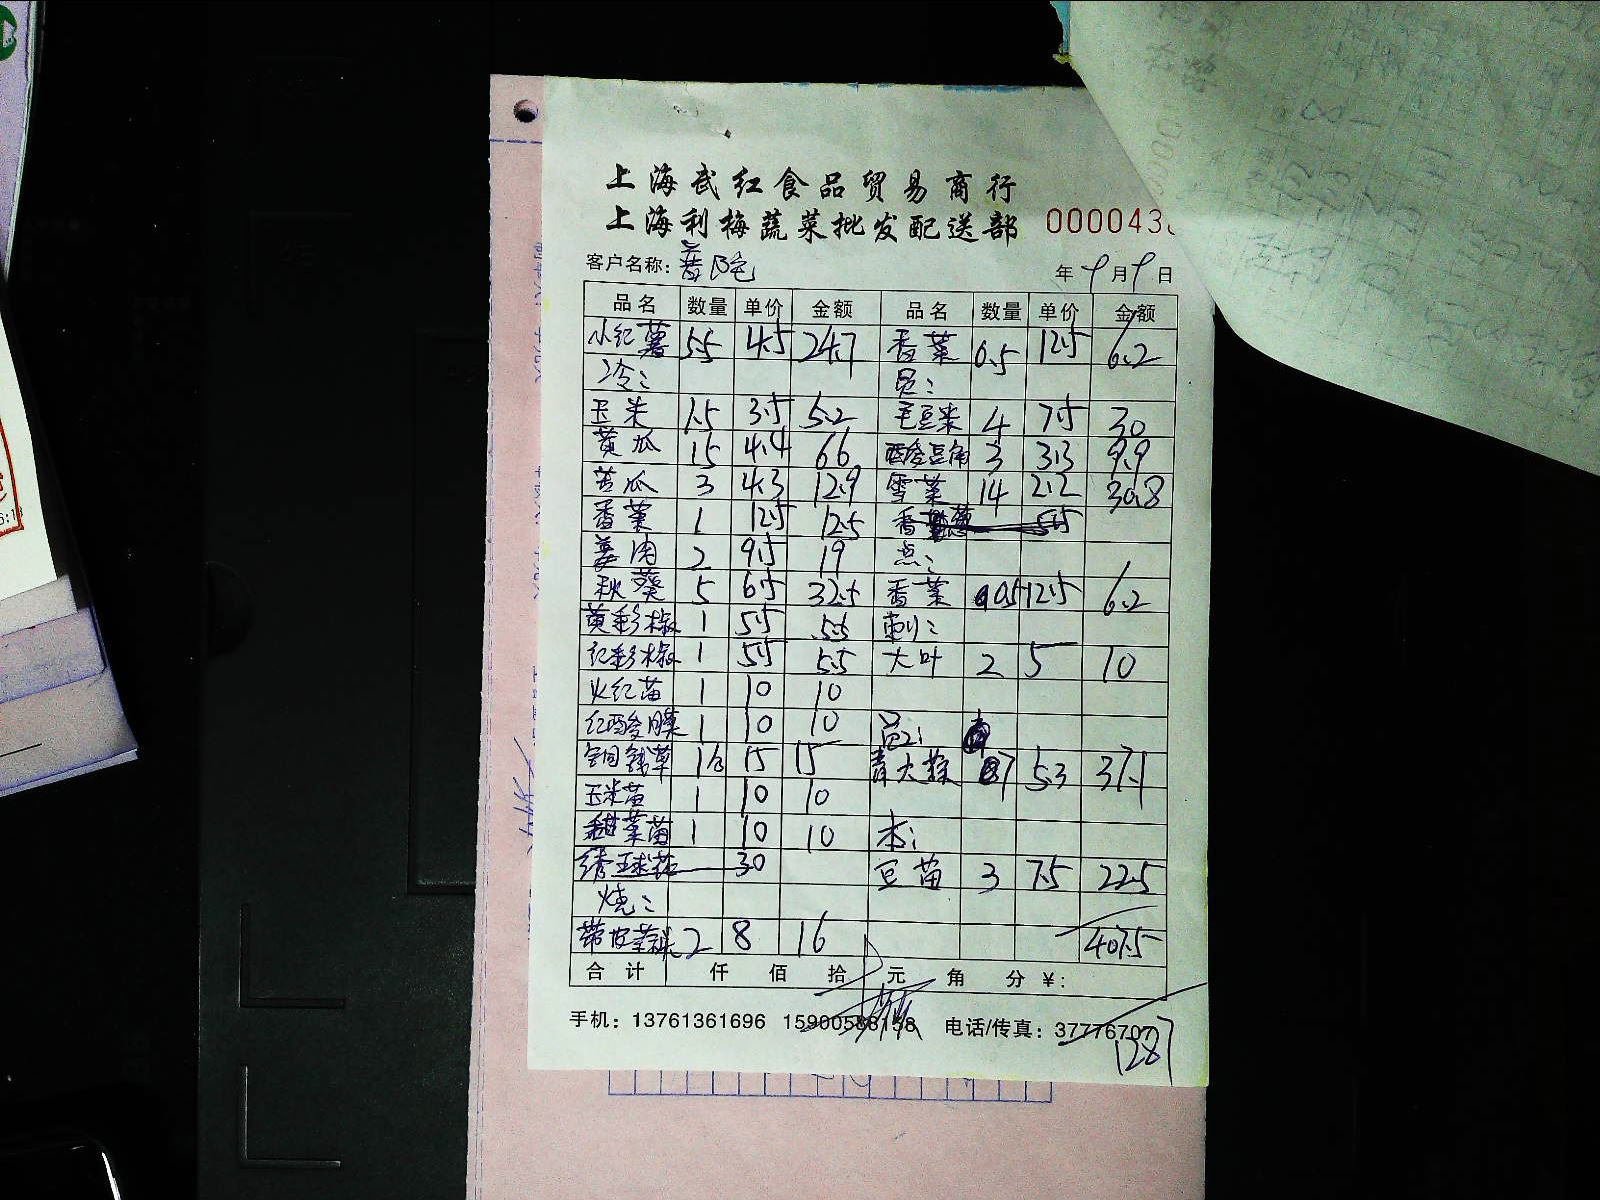 上海武红食品贸易商行
上海利梅蔬菜批发配送部 000043
客户名称: 年 9 月 9 日
品名 数量 单价 金额 品名 数量 单价 金额
小红薯 5.5 4.5 24.7 香菜 0.5 12.5 6.2
冷: 员:
玉米 1.5 3.5 5.2 毛豆米 4 7.5 30
黄瓜 15 4.4 66 酸豆角 3 3.3 9.9
苦瓜 3 4.3 12.9 雪菜 14 2.2 30.8
香菜 1 12.5 12.5 香 5.5
姜肉 2 9.5 19 点:
秋葵 5 6.5 32.5 香菜 0.5 12.5 6.2
黄彩椒 1 5.5 5.5 刺:
红彩椒 1 5.5 5.5 大叶 2 5 10
火红苗 1 10 10
红酸膜 1 10 10 员2:
铜钱草 1盒 15 15 青大蒜 7 5.3 37.1
玉米苗 1 10 10
甜菜苗 1 10 10 本:
绣球花 30 豆苗 3 7.5 22.5
烧:
带皮 2 8 16 407.5
合计 仟 佰 拾 元 角 分 ¥:
手机: 13761361696 15900588158 电话/传真: 37776707
1287